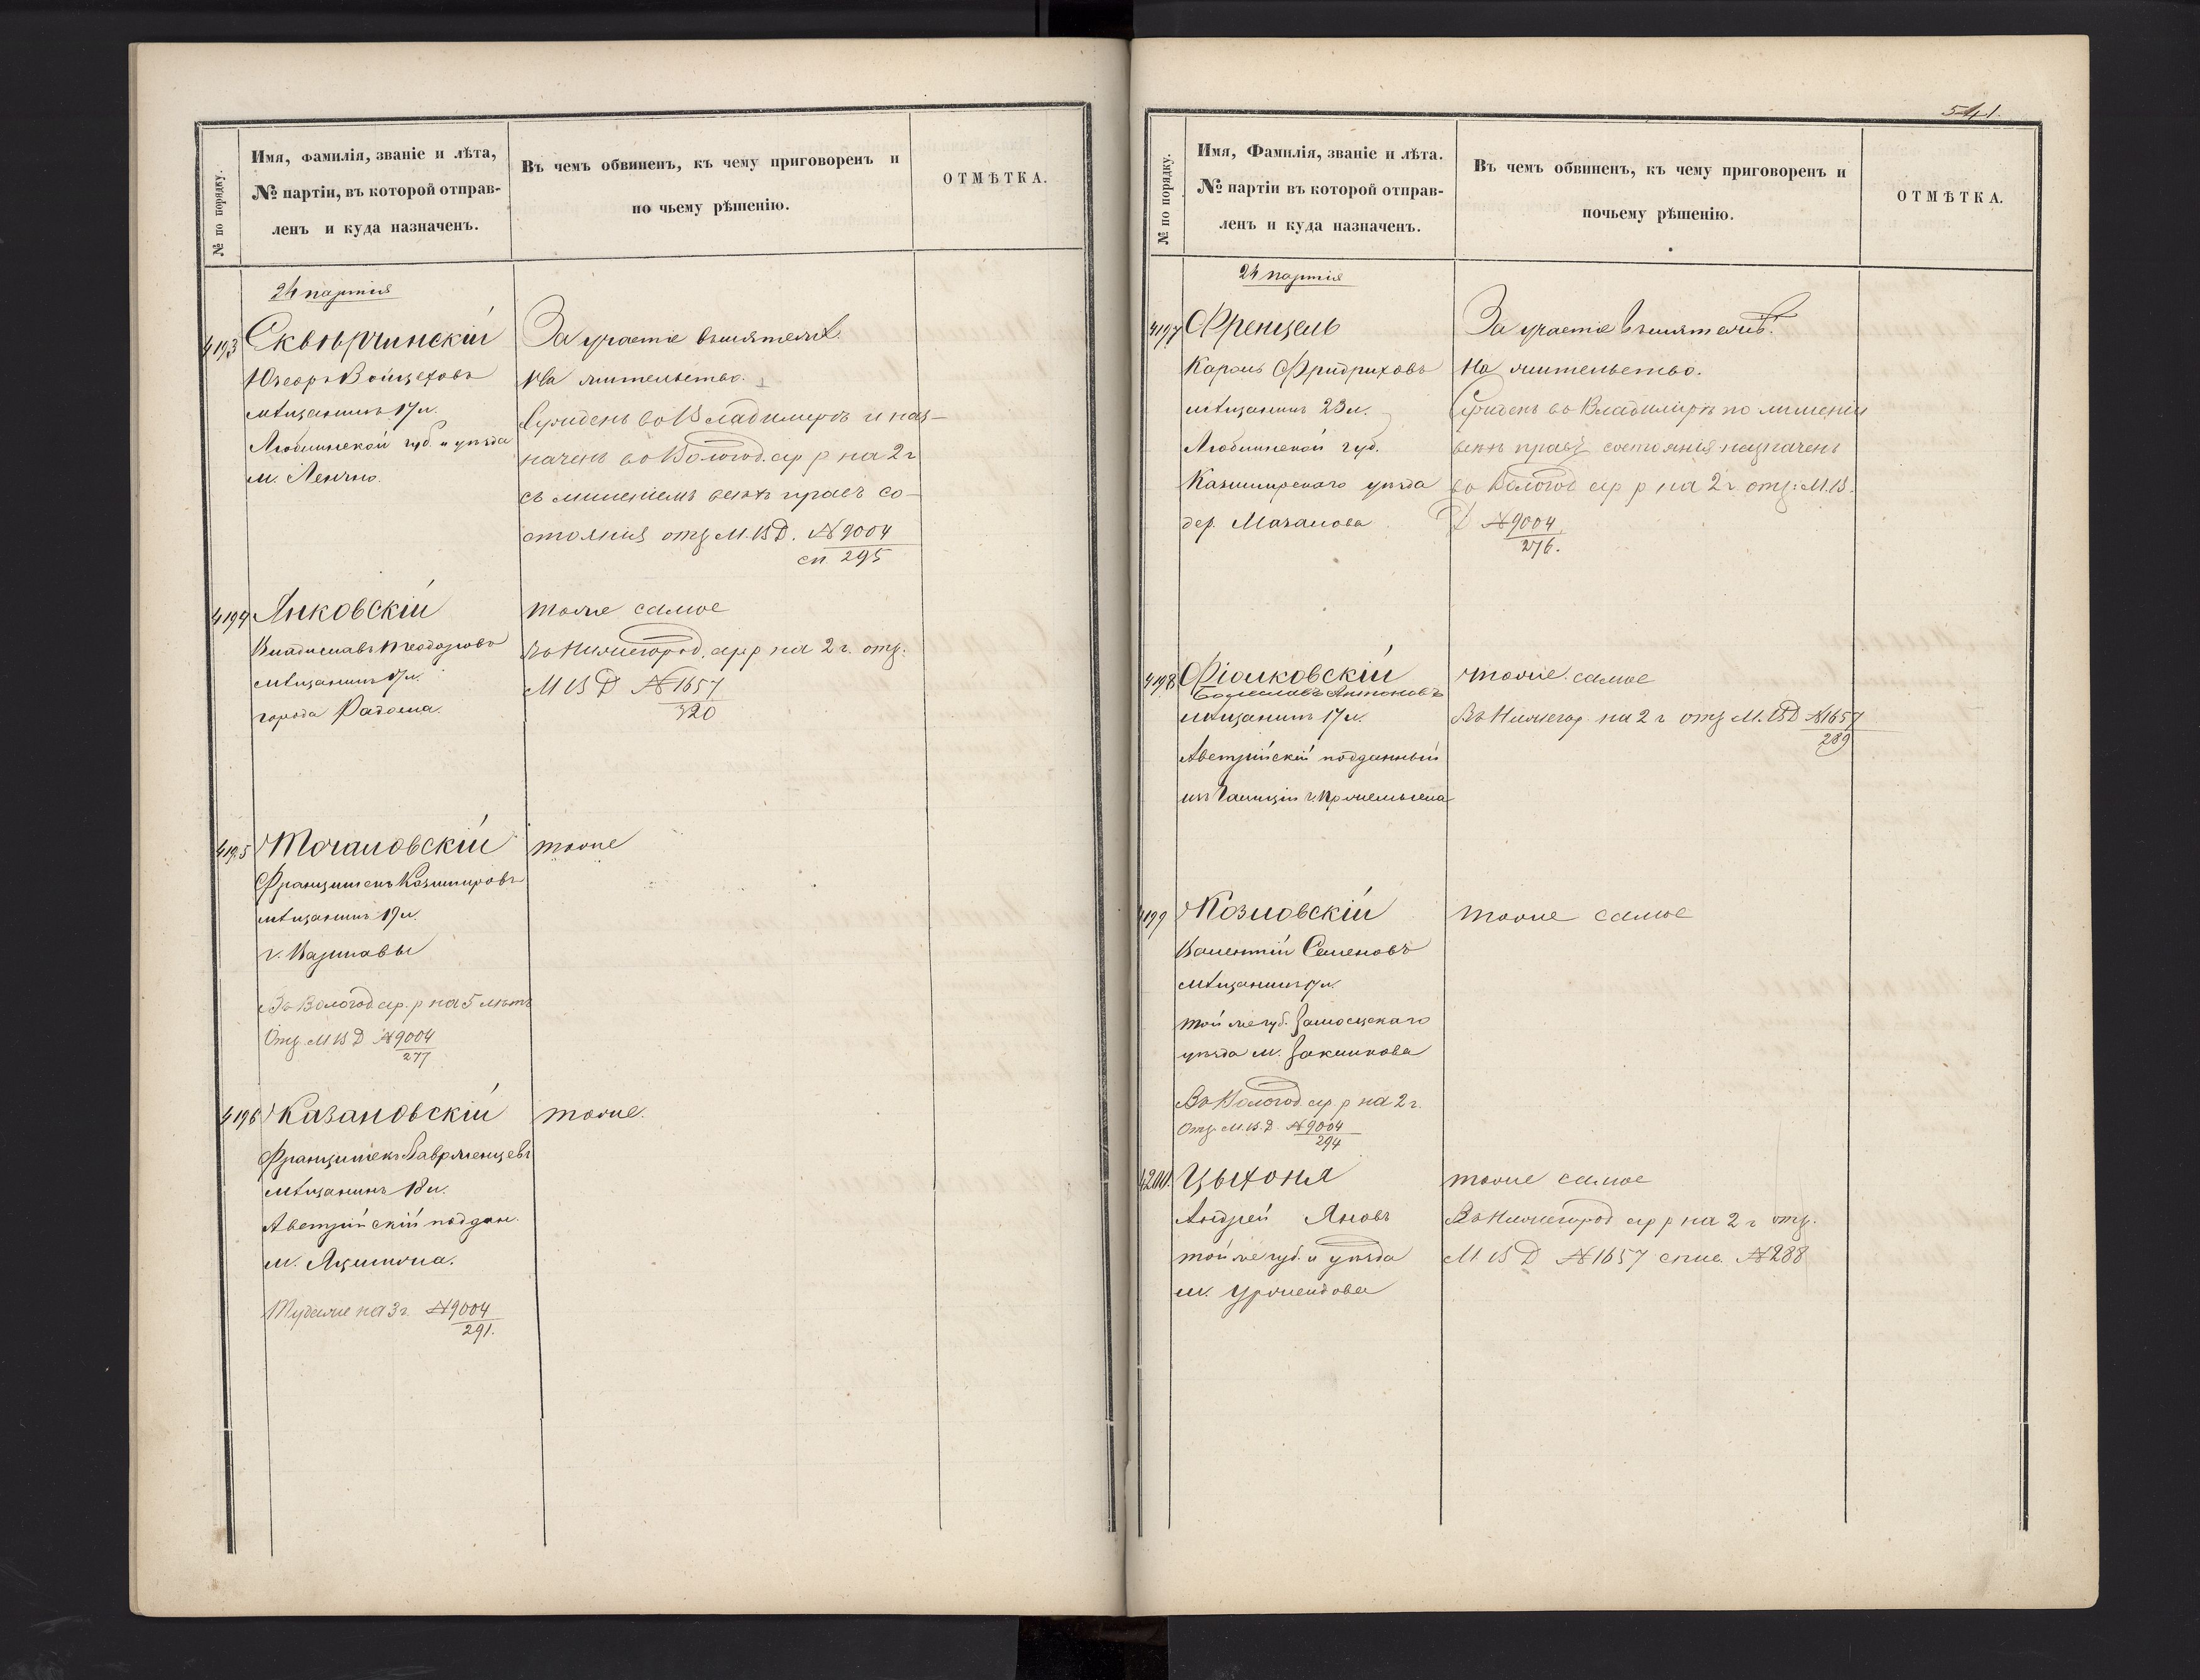 № по порядку.
Имя, фамилія, званіе и лѣта,
№ партіи, въ которой отправ-
ленъ и куда назначенъ.
Въ чемъ обвиненъ, къ чему приговоренъ и
по чьему рѣшенію.
ОТМѢТКА.
24 партія
4193 Сквѣрчинскій
Войцеховъ
мѣщанинъ 17 л.
Люблинской губ. и уѣзда
м. Ленчно.
За участіе въ мятежѣ.
На жительство.
Сужденъ во Владимірѣ и наз-
наченъ во Вологод. ар р на 2 г
съ лишеніемъ всѣхъ правъ со-
стоянія отз М.В.Д. №9004
сп. 295
4194 Янковскій
Владиславъ Теодоровъ
мѣщанинъ 17 л.
города Радома.
тоже самое
Въ Нижегород. ар р на 2 г. отз.
М В Д №1657
320
4195 Точановскій
Францишекъ Казиміровъ
мѣщанинъ 19 л.
г. Варшавы
Въ Вологод. ар. р на 5 лѣтъ
Отз. М.В.Д №9004
277
тоже
4196 Казановскій
Францишекъ Лавреженцевъ
мѣщанинъ 18 л.
Австрійскій поддан.
м.
Туда же на 3 г. №9004
291.
тоже.
541.
№ по порядку.
Имя, Фамилія, званіе и лѣта.
№ партіи въ которой отправ-
ленъ и куда назначенъ.
Въ чемъ обвиненъ, къ чему приговоренъ и
почьему рѣшенію.
ОТМѢТКА.
24 партія
4197 Френцель
Кароль Фридриховъ
мѣщанинъ 23 л.
Люблинской губ.
Казимирскаго уѣзда
дер.
За участіе въ мятежѣ.
На жительство.
Сужденъ во Владимірѣ по лишеніи
всѣхъ правъ состоянія назначенъ
во Вологод ар р на 2 г отз: М.В.
Д №9004
276.
4198 Фіалковскій
Болеславъ Антоновъ
мѣщанинъ 17 л.
Австрійскій подданный
изъ Галиціи г.
тоже самое
Въ Нижегор. на 2 г отз М.В.Д №1657
289
4199 Козловскій
Валентій Семеновъ
мѣщанинъ 17 л.
той же губ. Замосцскаго
уѣзда м. Закликова
Въ Вологод. ар. р на 2 г.
Отз. М.В.Д. №9004
294
тоже самое
4200. Цыхоня
Андрей Яновъ
той же губ. и уѣзда
м. Уржендова
тоже самое
Въ Нижегород ар р на 2 г отз.
М В Д №1657 спис. №288